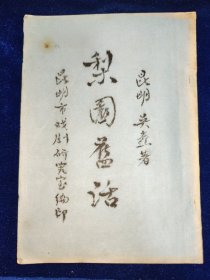 昆明 吴著
梨園舊话
昆明市戏剧研究室编印